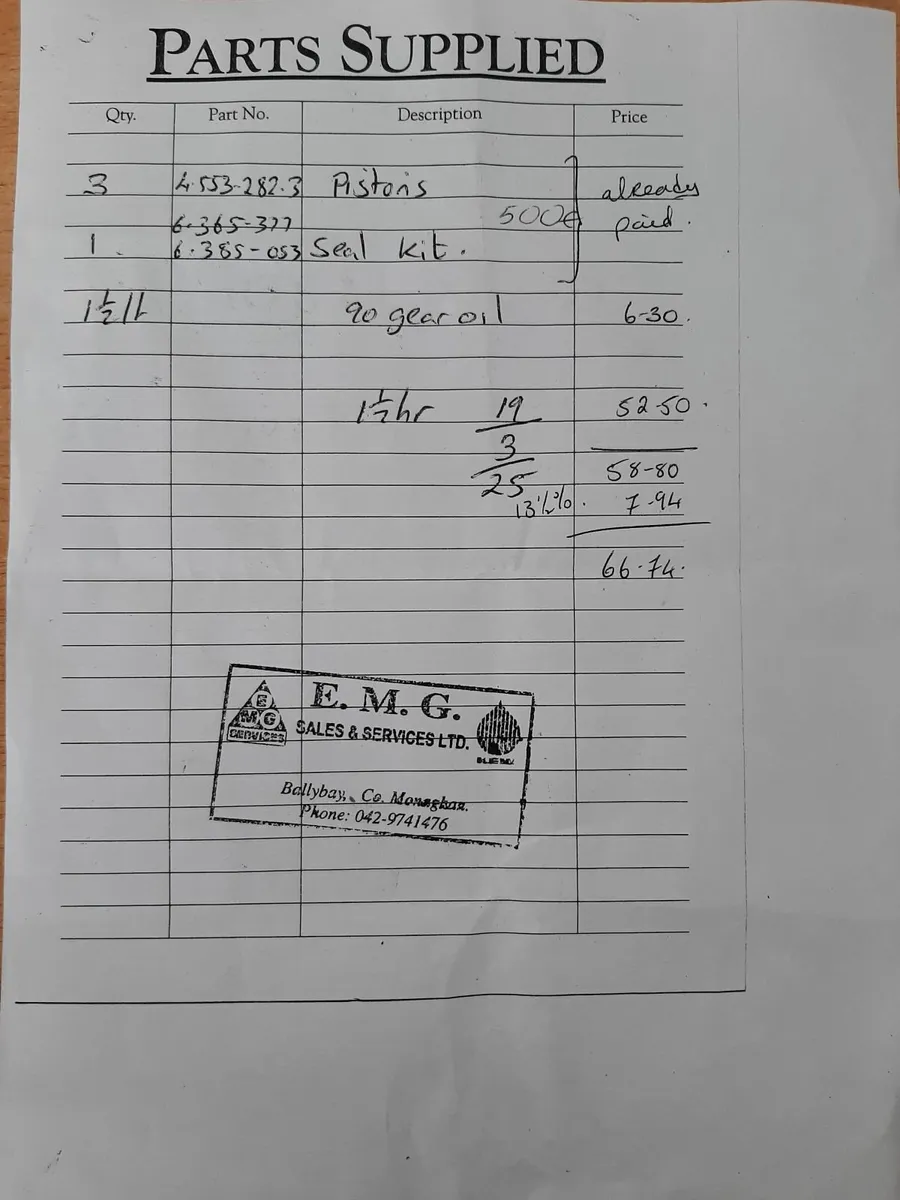 PARTS SUPPLIED
Qty. Part No. Description Price
3 4.553-282.3 Pistons already
6.365-377 500€ paid.
1. 6.385-053 Seal kit.
1½ lt 90 gear oil 6-30.
1½ hr 19 52-50.
3
58-80
25
13½%. 7-94
66-74.
E. M. G.
E
M G
SERVICES
SALES & SERVICES LTD.
Ballybay, Co. Monaghan.
Phone: 042-9741476